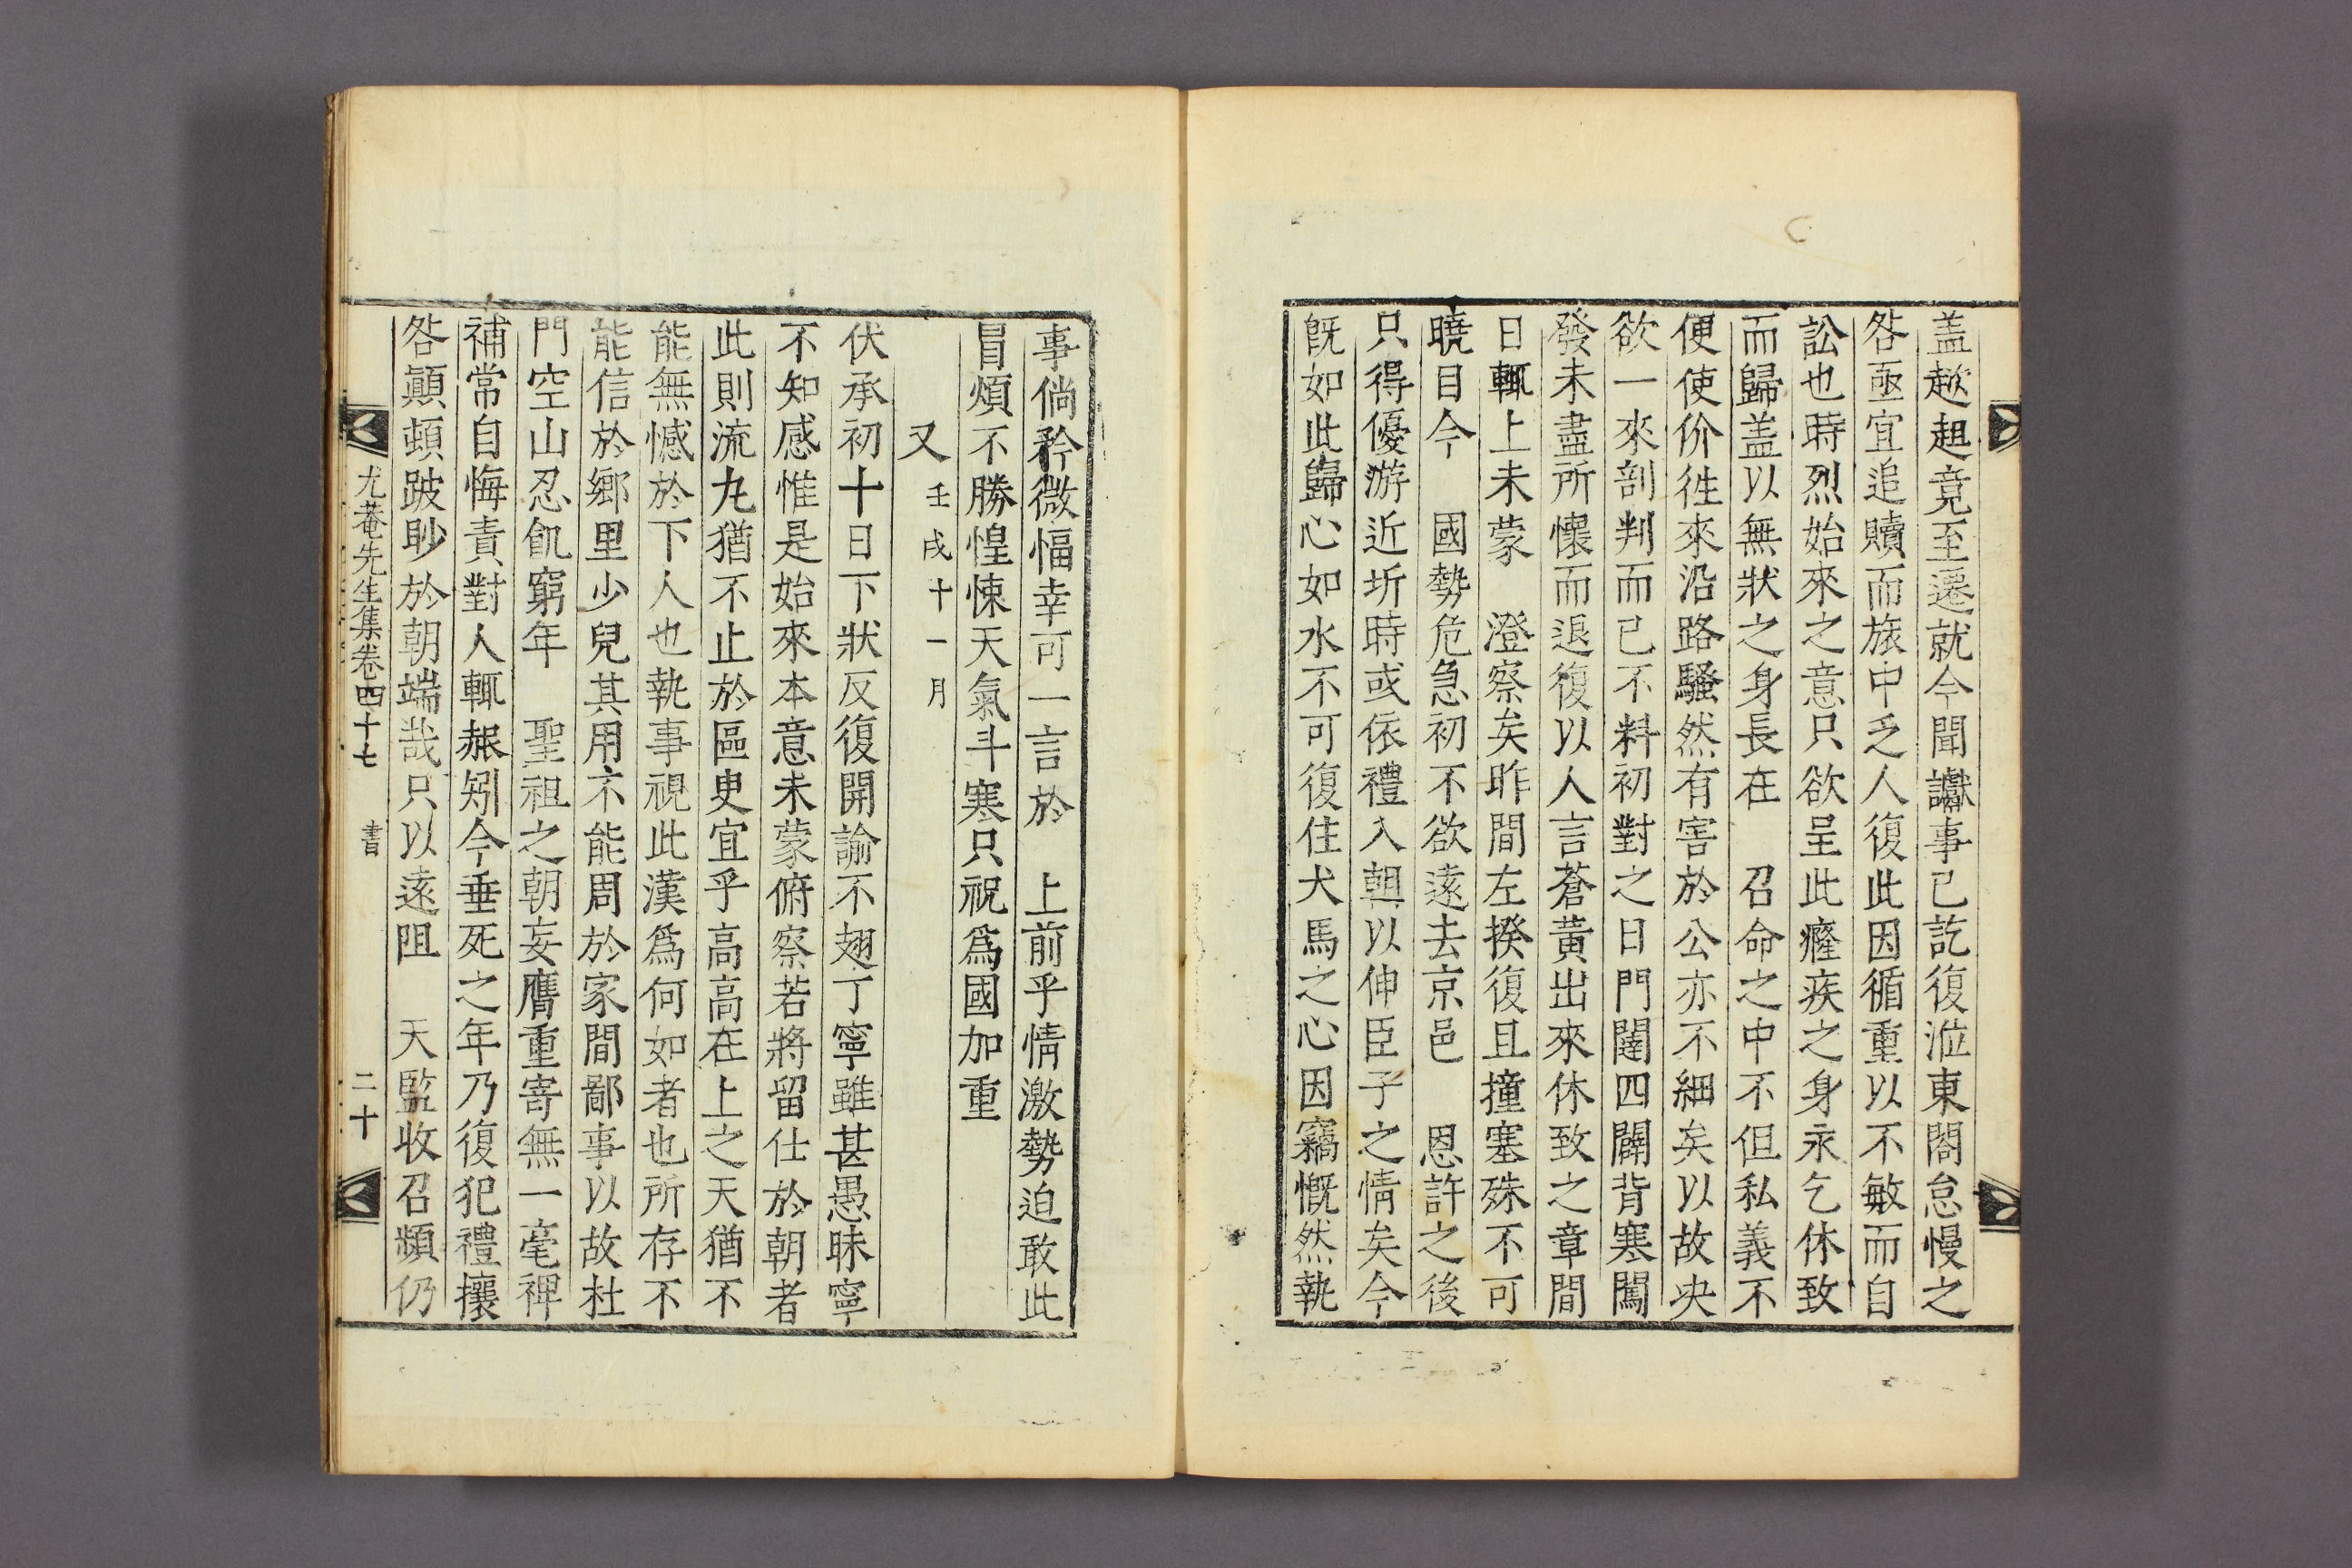 盖趑趄竟至遷就今聞讞事已訖復涖東閤怠慢之
咎亟宜追贖而旅中乏人復此因循重以不敏而自
訟也時烈始來之意只欲呈此癃疾之身永乞休致
而歸盖以無狀之身長在　召命之中不但私義不
便使价徃來沿路騷然有害於公亦不細矣以故央
欲一來剖判而已不料初對之日門闥四闢背寒闖
發未盡所懷而退復以人言蒼黃出來休致之章間
日輒上未蒙　澄察矣昨間左揆復且撞塞殊不可
曉目今　國勢危急初不欲遠去京邑　恩許之後
只得優游近圻時或依禮入朝以伸臣子之情矣今
旣如此歸心如水不可復住犬馬之心因竊慨然執
事倘矜微悃幸可一言於　上前乎情激勢迫敢此
冒煩不勝惶悚天氣斗寒只祝爲國加重
又 壬戌十一月
伏承初十日下狀反復開諭不翅丁寧雖甚愚昧寧
不知感惟是始來本意未蒙俯察若將留仕於朝者
此則流丸猶不止於區臾宜乎高高在上之天猶不
能無憾於下人也執事視此漢爲何如者也所存不
能信於鄉里少兒其用不能周於家間鄙事以故杜
門空山忍飢窮年　聖祖之朝妄膺重寄無一毫裨
補常自悔責對人輒赧矧今垂死之年乃復犯禮攘
咎顚頓跛眇於朝端哉只以遠阻　天監收召頻仍
尤菴先生集卷四十七　書　二十